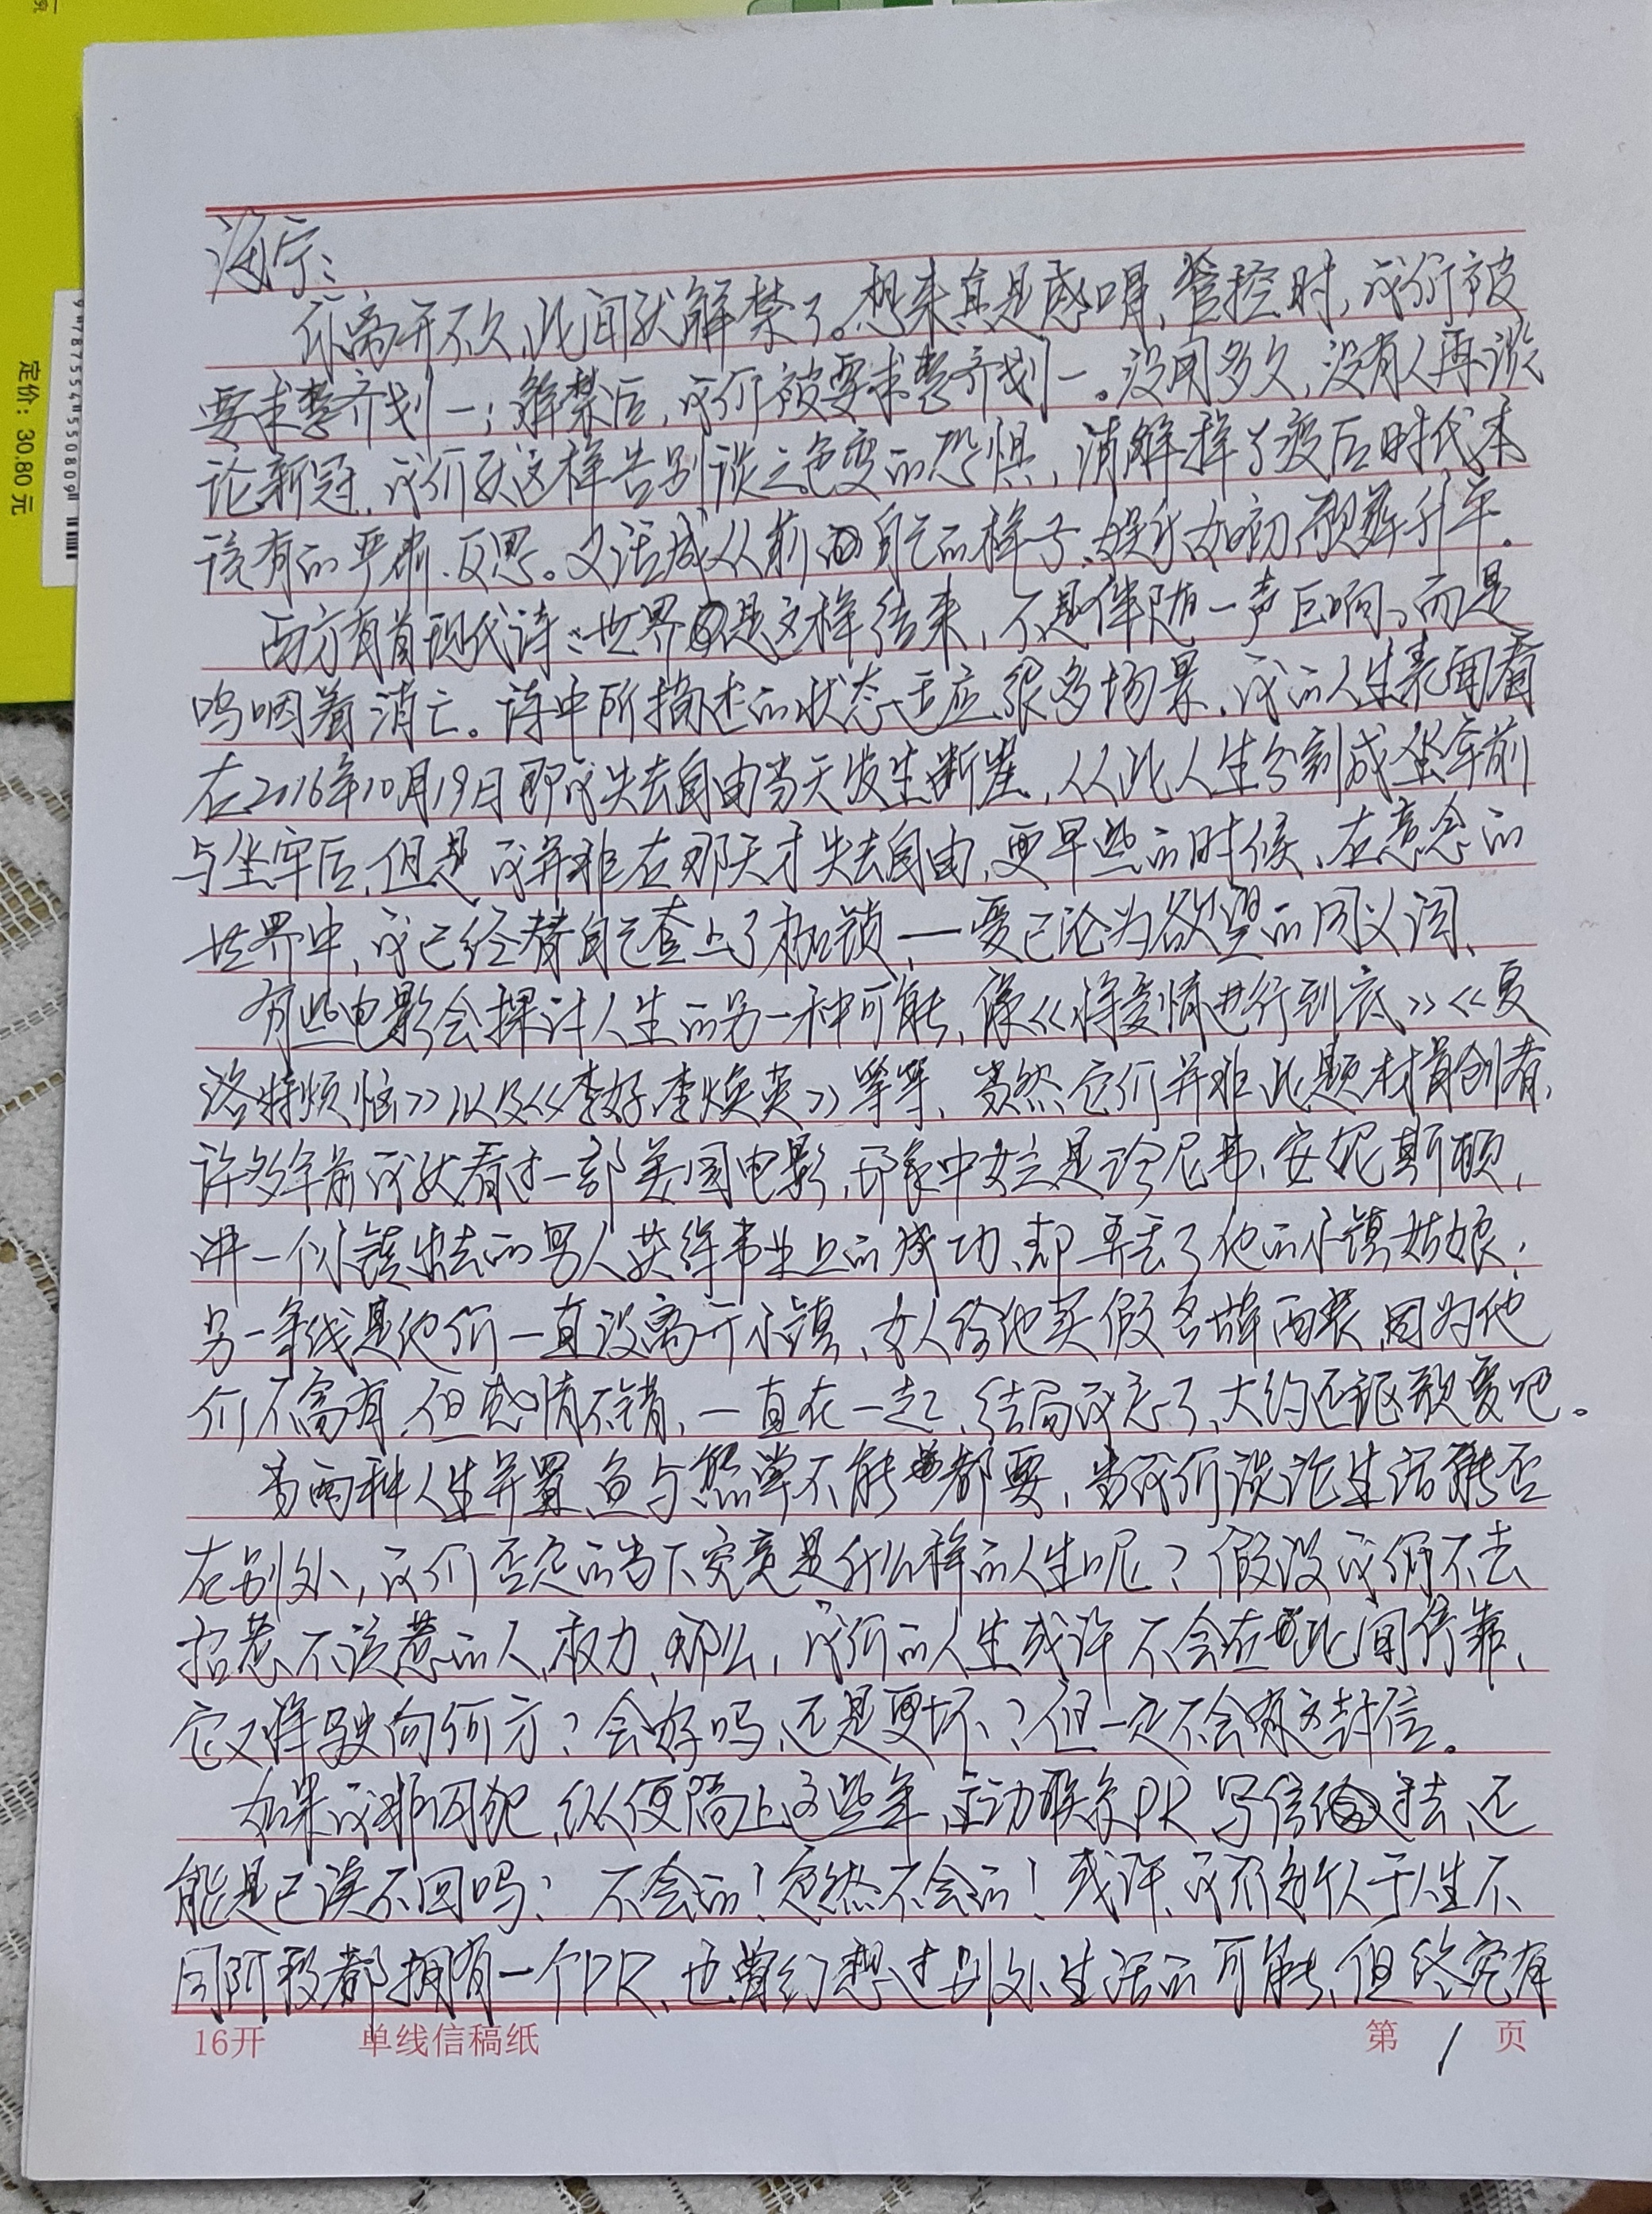 定价：30.80元
海宁：
你离开不久，此间就解禁了。想来真是感喟，管控时，我们被
要求整齐划一；解禁后，我们被要求整齐划一。没用多久，没有人再谈
论新冠，我们就这样告别谈之色变的恐惧，消解掉了疫后时代本
该有的严肃、反思。又活成从前自己的样子，娱乐如初，歌舞升平。
西方有首现代诗：世界是这样结束，不是伴随一声巨响，而是
呜咽着消亡。诗中所描述的状态适应很多场景，我的人生表面看
在2016年10月19日即我失去自由当天发生断崖，从此人生分割成坐牢前
与坐牢后，但是，我并非在那天才失去自由，更早些的时候，在意念的
世界中，我已经替自己套上了枷锁，——爱已沦为欲望的同义词、
有些电影会探讨人生的另一种可能，像《将爱情进行到底》《夏
洛特烦恼》以及《李好李焕英》等等，当然它们并非此题材首创者，
许多年前我就看过一部美国电影，印象中女主是珍尼弗、安妮斯顿，
讲一个小镇出去的男人获得事业上的成功，却弄丢了他的小镇姑娘；
另一条线是他们一直没离开小镇，女人给他买假名牌西装，因为他
们不富有，但感情不错，一直在一起，结局我忘了，大约还讴歌爱吧。
当两种人生并置，鱼与熊掌不能都要，当我们谈论生活能否
在别处，我们否定的当下究竟是什么样的人生呢？假设我们不去
招惹不该惹的人、权力，那么，我们的人生或许不会在此间停靠，
它又将驶向何方？会好吗，还是更坏？但一定不会有这封信。
如果我非囚犯，纵使隔上这些年，主动联系PR写信过去，还
能是已读不回吗？不会的！定然不会的！或许，我不过似于人生不
同阶段都拥有一个PR，也曾幻想过别处生活的可能，但终究有
16开 单线信稿纸 第 1 页